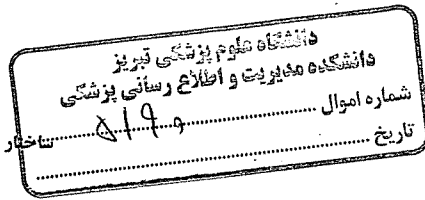 دانشگاه علوم پزشکی تبریز
دانشکده مدیریت و اطلاع رسانی پزشکی
شماره اموال
تاریخ
ساختار